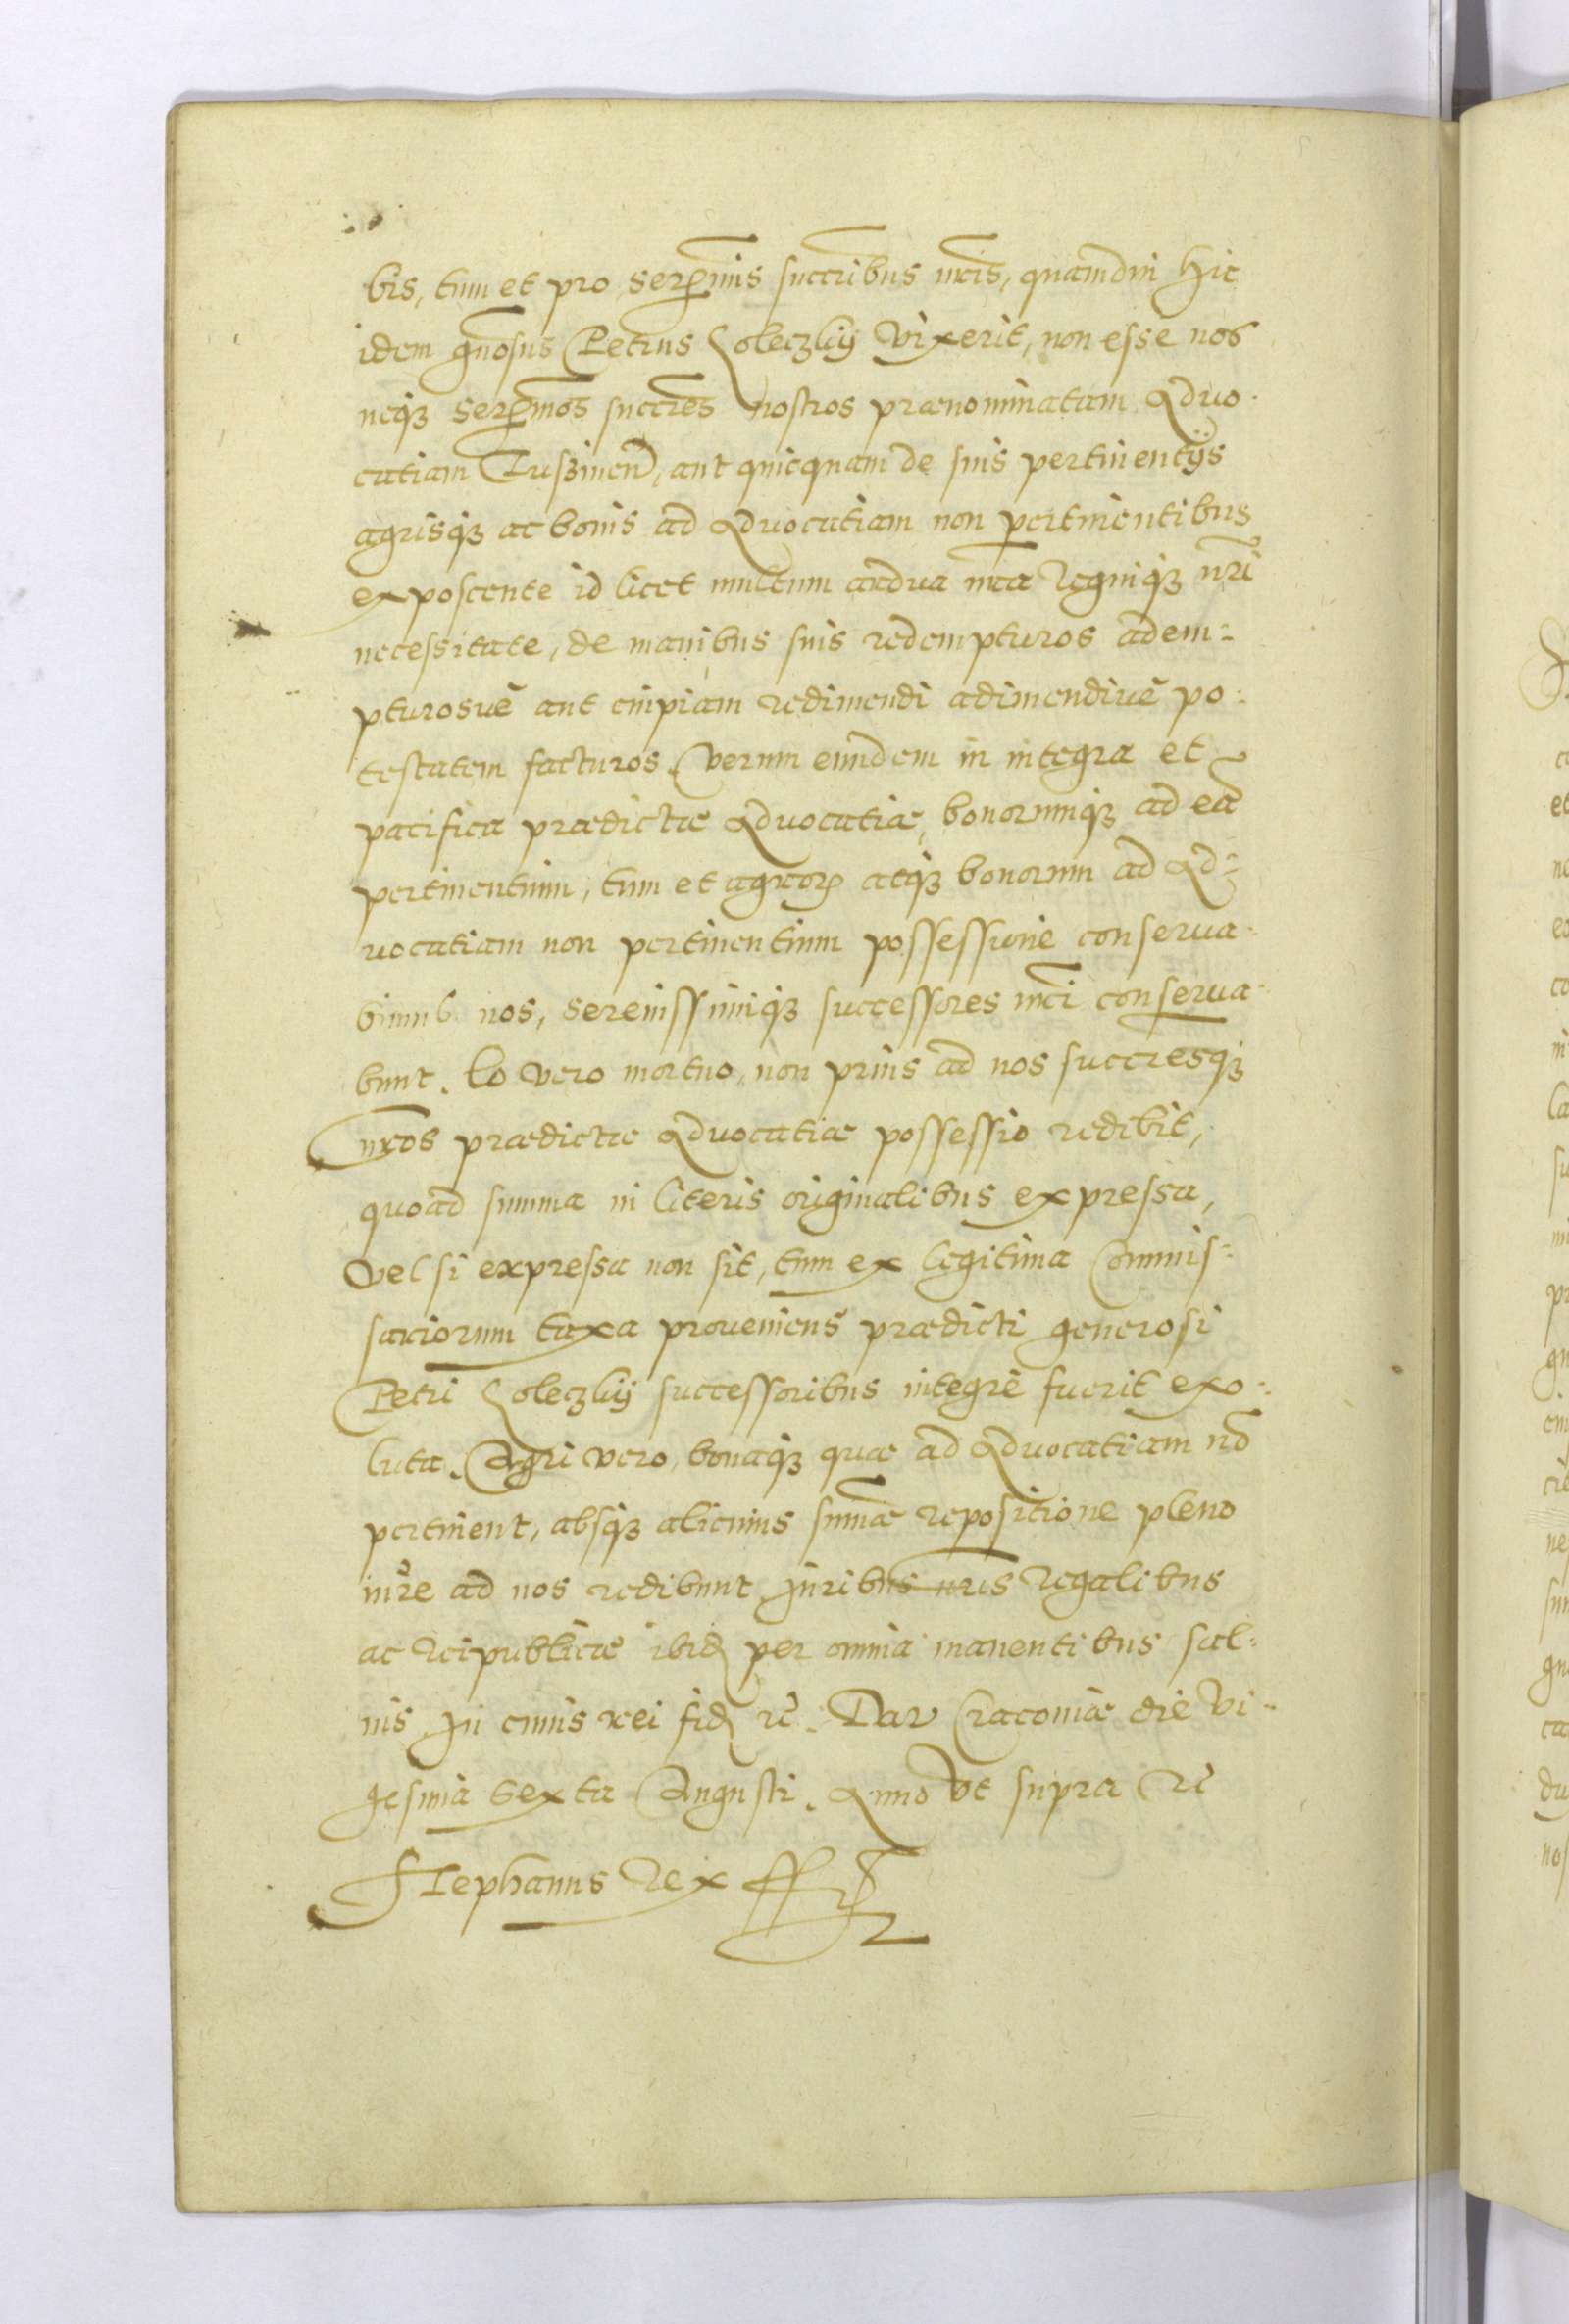 bis, tum et pro serenmis succribus nris, quamdiu hic
idem gnosus Petrus Soleczkij vixerit, non esse nos
neqꝫ serenmos succres nostros prænominatam Aduo-
catiam Tuszinen, aut quicquam de suis pertinentijs
agrisqꝫ ac bonis ad Aduocatiam non pertinentibus
exposcente id licet multum ardua nra Regniqꝫ nri
necessitate, de manibus suis redempturos adem-
pturosuè aut cuipiam redimendi adimendiuè po-
testatem facturos. Verum eundem in integra et
pacifica prædictæ Aduocatiæ, bonorumqꝫ ad eã
pertinentium, tum et agroꝝ atqꝫ bonorum ad Ad-
uocatiam non pertinentium possessione conserua-
bimus nos, serenissimiqꝫ successores nri conserua-
bunt. Eo vero mortuo, non prius ad nos succresqꝫ
nros prædictæ Aduocatiæ possessio redibit,
quoad summa in literis originalibus expressa,
Vel si expressa non sit, tum ex legitima Commis-
sariorum taxa proueniens prædicti generosi
Petri Soleczkij successoribus integrè fuerit exo-
luta. Agri vero, bonaqꝫ quæ ad Aduocatiam nõ
pertinent, absqꝫ alicuius sum̃æ repositione pleno
iure ad nos redibunt Juribus nris Regalibus
ac Reipublicæ ibid per omnia manentibus sal-
uis In cuius rei fid rc̃. Dat Cracouiæ die Vi-
gesima sexta Augusti. Anno Vt supra rc̃
Stephanus Rex sst